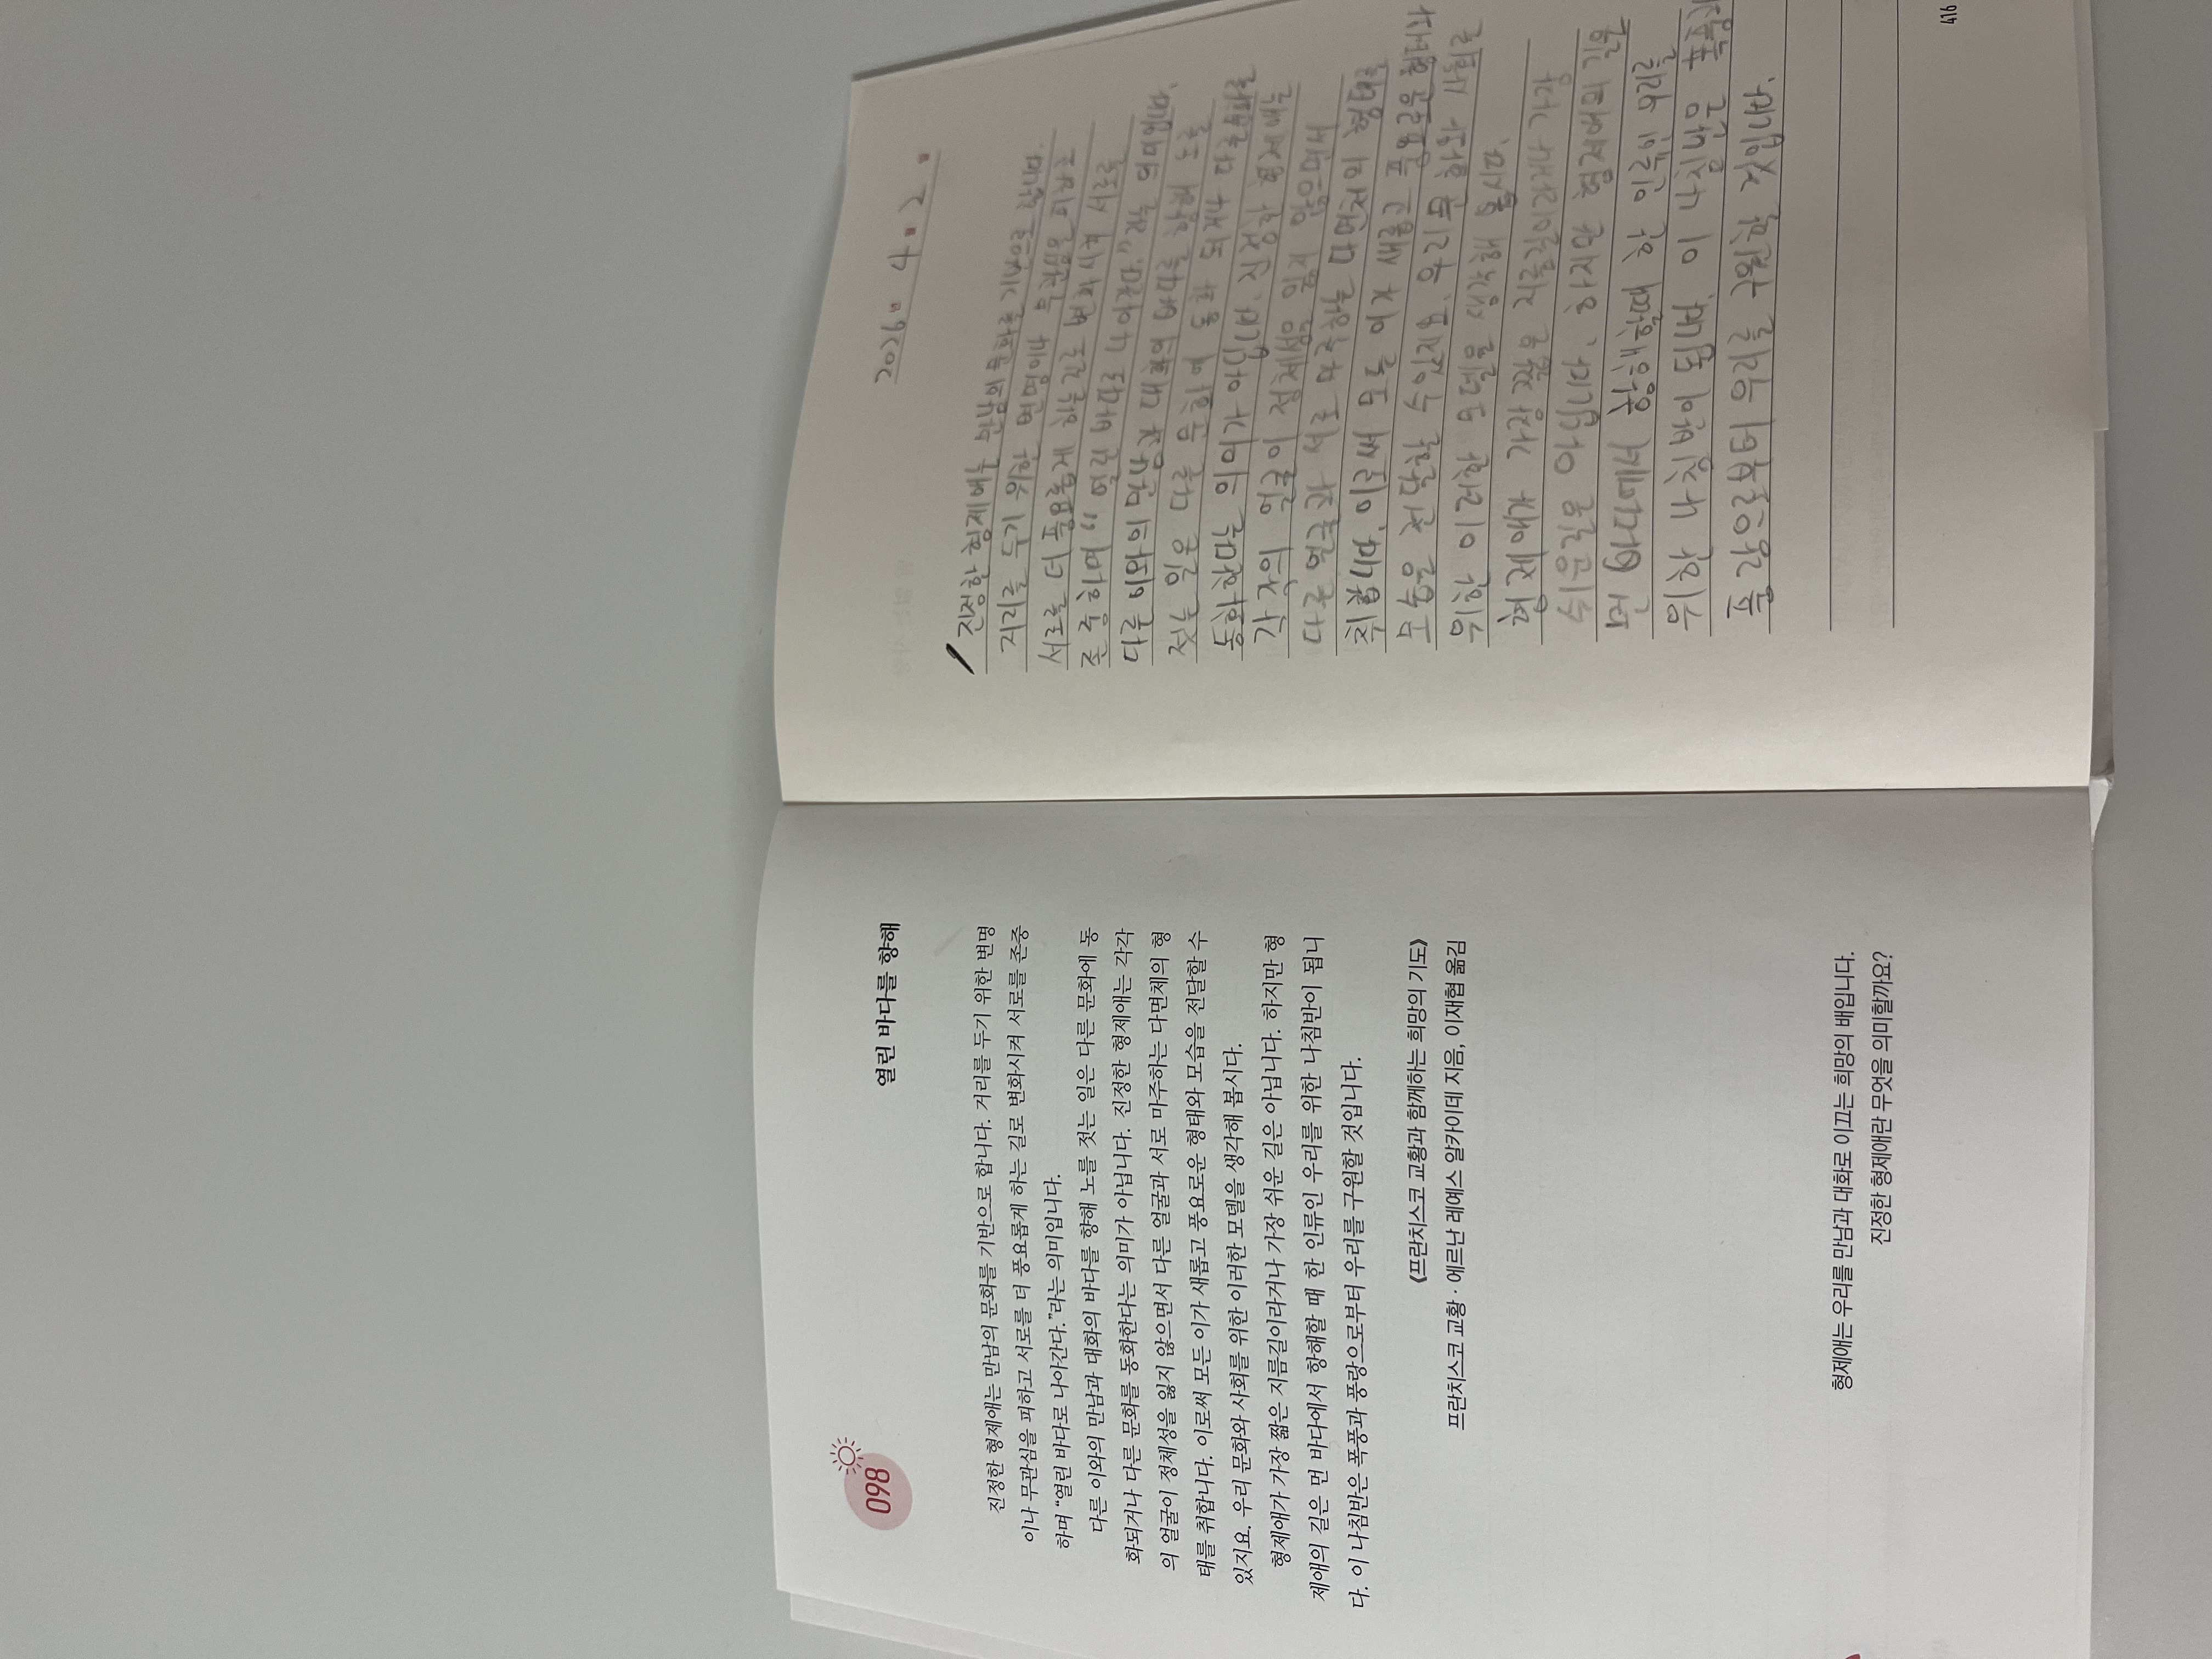 098
열린 바다를 향해
진정한 형제애는 만남의 문화를 기반으로 합니다. 거리를 두기 위한 변명
이나 무관심을 피하고 서로를 더 풍요롭게 하는 길로 변화시켜 서로를 존중
하며 “열린 바다로 나아간다.”라는 의미입니다.
다른 이와의 만남과 대화의 바다를 향해 노를 젓는 일은 다른 문화에 동
화되거나 다른 문화를 동화한다는 의미가 아닙니다. 진정한 형제애는 각각
의 얼굴이 정체성을 잃지 않으면서 다른 얼굴과 서로 마주하는 다면체의 형
태를 취합니다. 이로써 모든 이가 새롭고 풍요로운 형태와 모습을 전달할 수
있지요. 우리 문화와 사회를 위한 이러한 모델을 생각해 봅시다.
형제애가 가장 짧은 지름길이라거나 가장 쉬운 길은 아닙니다. 하지만 형
제애의 길은 먼 바다에서 항해할 때 한 인류인 우리를 위한 나침반이 됩니
다. 이 나침반은 폭풍과 풍랑으로부터 우리를 구원할 것입니다.
《프란치스코 교황과 함께하는 희망의 기도》
프란치스코 교황 · 에르난 레예스 알카이데 지음, 이재협 옮김
형제애는 우리를 만남과 대화로 이끄는 희망의 배입니다.
진정한 형제애란 무엇을 의미할까요?
2026. 4. 2.
진정한 형제애는 만남의 문화를 기반으로 합니다.
거리를 두기 위한 변명이나 무관심을 피하고
서로를 더 풍요롭게 하는 길로 변화시켜 서로를
존중하며 “열린 바다로 나아간다.”라는 의미입니다.
다른 이와의 만남과 대화의 바다를 향해 노를
젓는 일은 다른 문화에 동화 되거나 다른 문화를
동화한다는 의미가 아닙니다. 진정한 형제애는
각각의 얼굴이 정체성을 잃지 않으면서
다른 얼굴과 서로 마주하는 다면체의 형태를
취합니다. 이로써 모든 이가 새롭고 풍요로운 형태와
모습을 전달할 수 있지요. 우리 문화와 사회를
위한 이러한 모델을 생각해 봅시다.
형제애가 가장 짧은 지름길이라거나 가장
쉬운길은 아닙니다. 하지만 형제애의 길은
먼 바다에서 항해할때 한 인류인 우리를
위한 나침반이 됩니다. 이 나침반은 폭풍과
풍랑으로부터 우리를 구원할 것입니다.
416